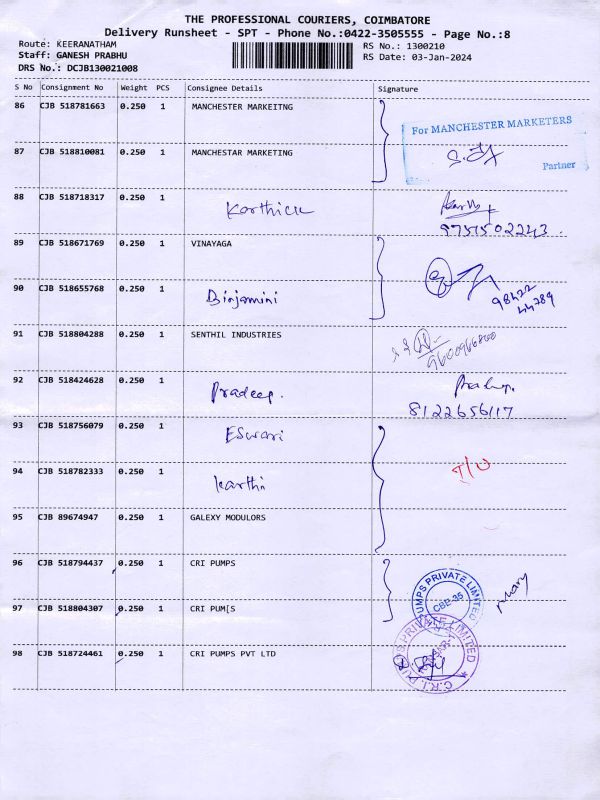 THE PROFESSIONAL COURIERS, COIMBATORE
Delivery Runsheet - SPT - Phone No.:0422-3505555 - Page No.:8
Route: KEERANATHAM RS No.: 1300210
Staff: GANESH PRABHU RS Date: 03-Jan-2024
DRS No.: DCJB130021008
S No Consignment No Weight PCS Consignee Details Signature
86 CJB 518781663 0.250 1 MANCHESTER MARKEITNG
For MANCHESTER MARKETERS
87 CJB 518810081 0.250 1 MANCHESTAR MARKETING
Partner
88 CJB 518718317 0.250 1 Karthick
9751502243
89 CJB 518671769 0.250 1 VINAYAGA
90 CJB 518655768 0.250 1 Binjamini
98422
44289
91 CJB 518804288 0.250 1 SENTHIL INDUSTRIES
92 CJB 518424628 0.250 1 Pradeep.
8122656117
93 CJB 518756079 0.250 1 ESwari
94 CJB 518782333 0.250 1 karthi
95 CJB 89674947 0.250 1 GALEXY MODULORS
96 CJB 518794437 0.250 1 CRI PUMPS
PUMPS PRIVATE LIMITED
CBE-35
97 CJB 518804307 0.250 1 CRI PUM[S
98 CJB 518724461 0.250 1 CRI PUMPS PVT LTD
C.R.I. PUMPS PRIVATE LIMITED